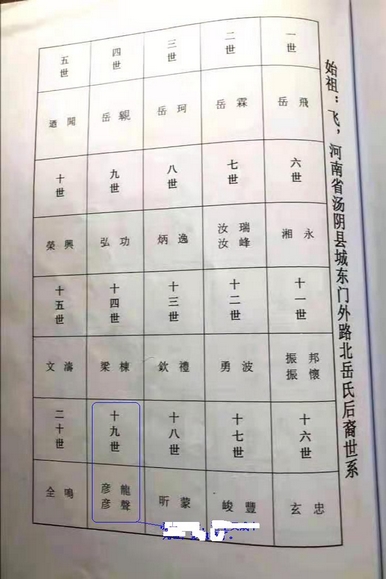 始祖：飞，河南省汤阴县城东门外路北岳氏后裔世系
一世
二世
三世
四世
五世
岳飛
岳霖
岳珂
岳
迺聞
六世
七世
八世
九世
十世
湘永
汝瑞
汝峰
炳逸
弘功
榮興
十一世
十二世
十三世
十四世
十五世
振邦
振懷
勇波
欽禮
梁棟
文濤
十六世
十七世
十八世
十九世
二十世
玄忠
峻豐
昕蒙
彦龍
彦聲
全鳴